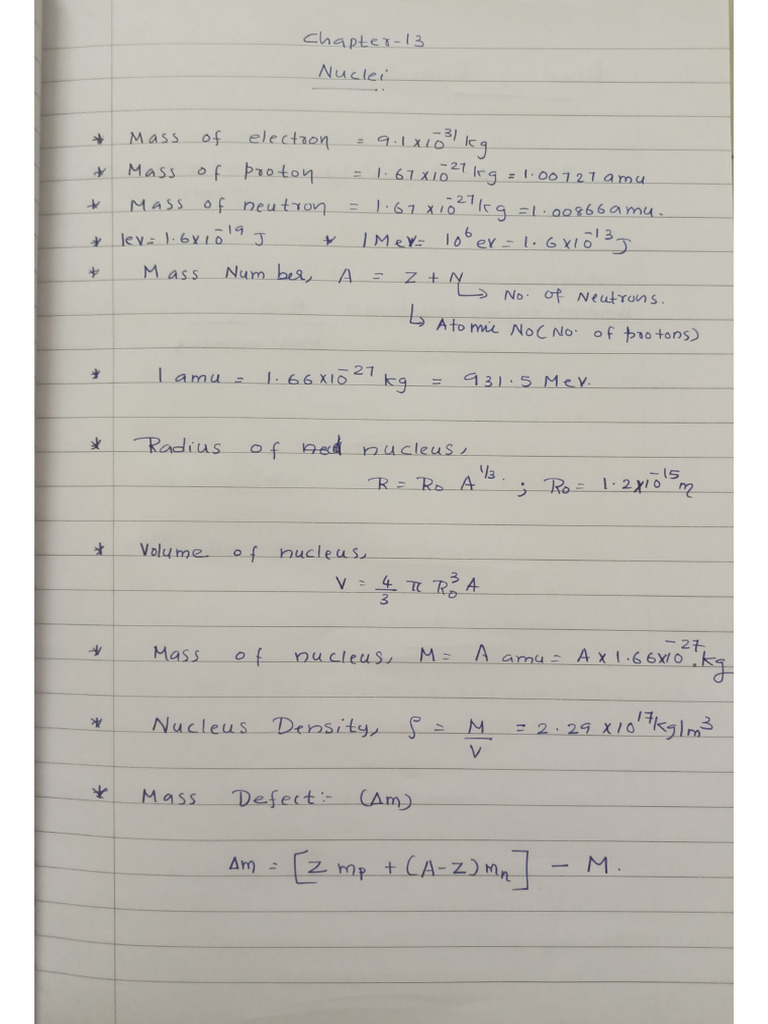 Chapter-13
Nuclei
* Mass of electron = 9.1x10^-31 kg
* Mass of proton = 1.67x10^-27 kg = 1.00727 amu
* Mass of neutron = 1.67x10^-27 kg = 1.00866 amu.
* 1ev = 1.6x10^-19 J * 1 Mev = 10^6 ev = 1.6x10^-13 J
* Mass Number, A = Z + N
↳ No. of Neutrons.
↳ Atomic No (No. of protons)
* 1 amu = 1.66x10^-27 kg = 931.5 Mev.
* Radius of nucleus,
R = R₀ A^1/3 ; R₀ = 1.2x10^-15 m
* Volume of nucleus,
V = 4/3 π R₀³ A
* Mass of nucleus, M = A amu = A x 1.66x10^-27 kg
* Nucleus Density, ρ = M/V = 2.29 x10^17 kg/m³
* Mass Defect:- (Δm)
Δm = [Z mp + (A-Z) mn] - M.